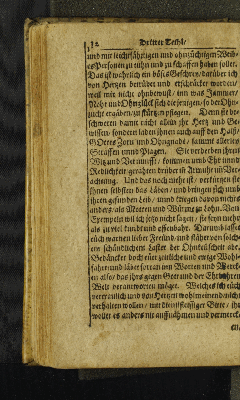 32 Dritter Theil/
und mit leichtfährigen und ohnzüchtigen Weibs-
es Personen zu thun und zu schaffen haben sollet.
Das ist warlich ein böses Geschrey/ darüber ich
von Hertzen betrübet und erschrocken worden/
weil mir nicht ohnbewust/ inn was Jammer/
Noht und Ohnglück sich diejenigen/ so der Ohn-
zucht ergäben/ zu stürtzen pflegen. Denn sie be-
schweren damit nicht allein ihr Hertz und Ge-
wissen/ sondern laden ihnen auch auff den Halß/
GOttes Zorn und Ohngnade/ sammt allerley
Straffen unnd Plagen. Sie verderben ihren
Witz und Vernunfft/ kommen umb Ehr unnd
Redlichkeit/ gerahten drüber in Armuht und Ver-
achtung. Und das noch mehr ist/ verkürtzen sie
ihnen selbsten das Läben/ und bringen sich umb
ihren gesunden Leib/ unnd kriegen davon nichts
anders/ als Motten und Würm zu Lohn. Von
Exempeln wil ich jetzo nicht sagen/ sie seyn mehr
als zu viel kund und offenbahr. Darumb lasset
euch warnen lieber Freund/ und stähet von solch-
en schändlichem Laster der Ohnkeuschheit abe.
Bedäncket doch euer zeitliche und ewige Wohl-
fahrt und läbet fortan inn Worten und Werck-
en also/ das ihrs gegen Gott und der Ehrbahren
Welt verantworten möget. Welches ich euch
vertreulich und von Hertzen wohlmeinend nicht
verhalten wollen/ mit dienstfleissiger Bitte/ ihr
wollet es anders nit auffnähmen und vermerck-